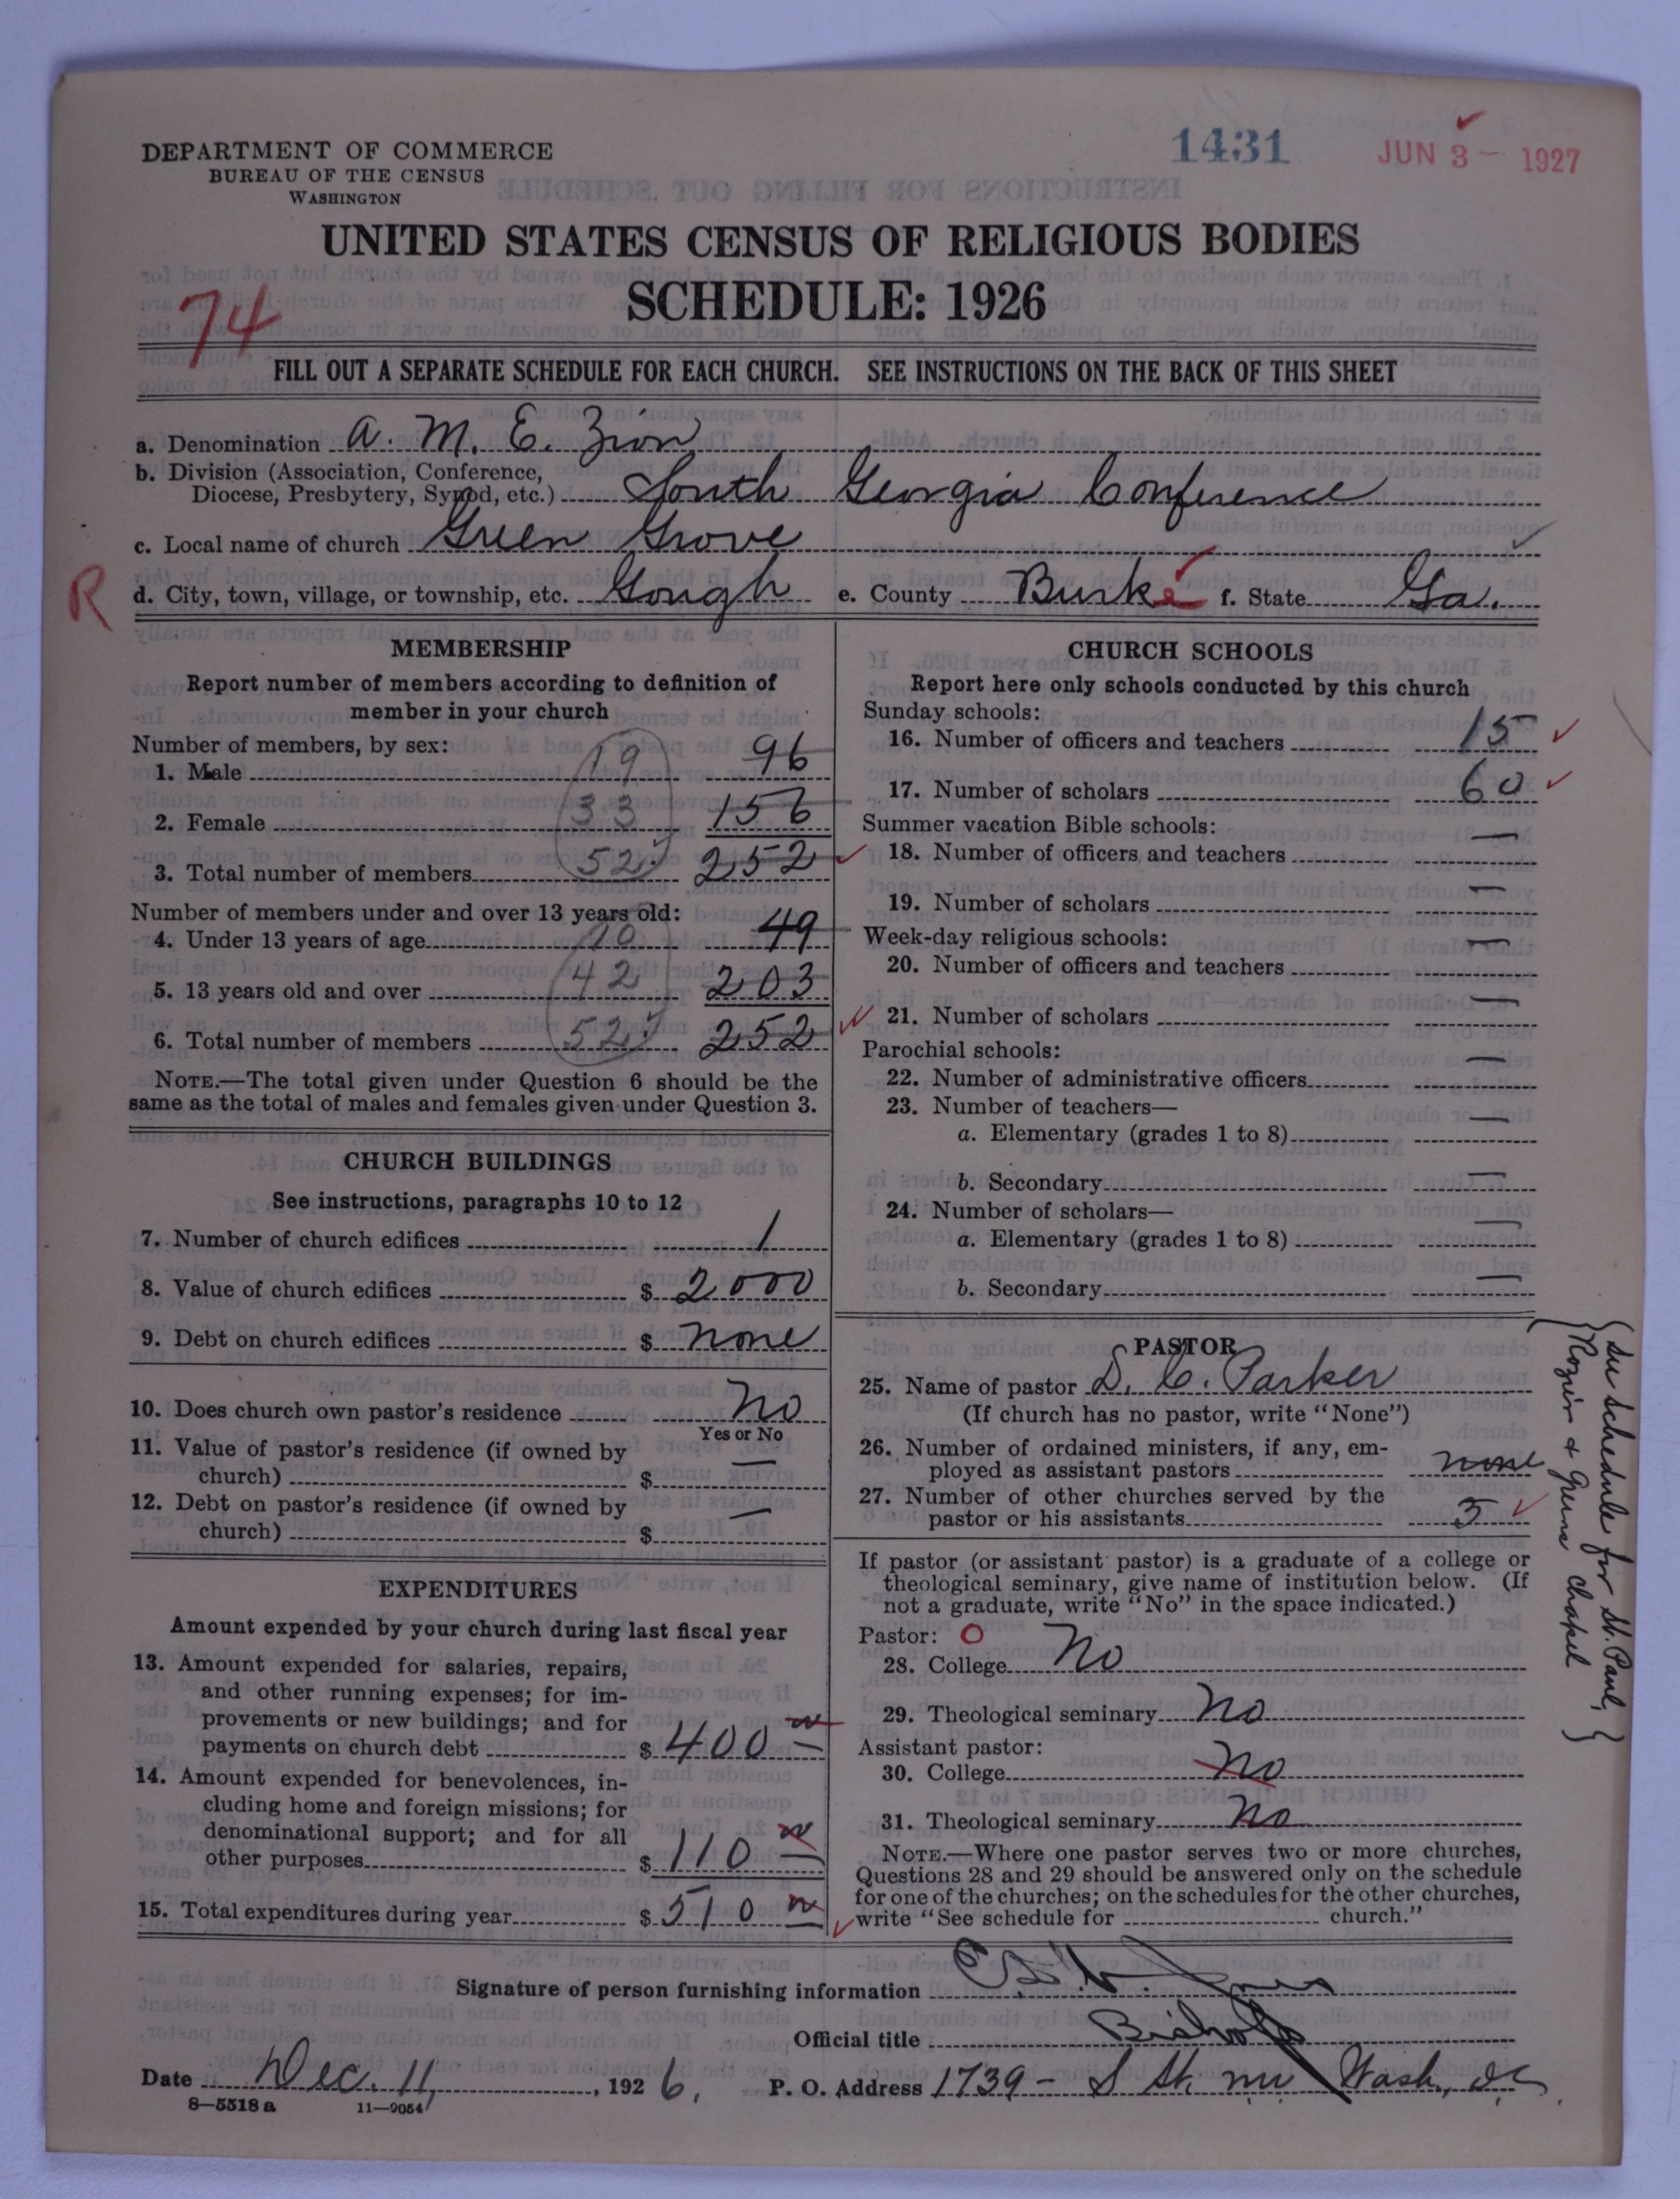 1431
JUN 3 - 1927
DEPARTMENT OF COMMERCE
BUREAU OF THE CENSUS
WASHINGTON
UNITED STATES CENSUS OF RELIGIOUS BODIES
SCHEDULE: 1926
74
FILL OUT A SEPARATE SCHEDULE FOR EACH CHURCH. SEE INSTRUCTIONS ON THE BACK OF THIS SHEET
a. Denomination A. M. E. Zion
b. Division (Association, Conference,
Diocese, Presbytery, Synod, etc.) South Georgia Conference
c. Local name of church Green Grove
R d. City, town, village, or township, etc. Gough e. County Burke f. State Ga.
MEMBERSHIP
Report number of members according to definition of
member in your church
Number of members, by sex:
1. Male 19 96
2. Female 33 156
3. Total number of members 52 252
Number of members under and over 13 years old:
4. Under 13 years of age 10 49
5. 13 years old and over 42 203
6. Total number of members 52 252
NOTE.—The total given under Question 6 should be the
same as the total of males and females given under Question 3.
CHURCH BUILDINGS
See instructions, paragraphs 10 to 12
7. Number of church edifices 1
8. Value of church edifices $ 2000
9. Debt on church edifices $ none
10. Does church own pastor's residence No
Yes or No
11. Value of pastor's residence (if owned by
church) $ —
12. Debt on pastor's residence (if owned by
church) $ —
EXPENDITURES
Amount expended by your church during last fiscal year
13. Amount expended for salaries, repairs,
and other running expenses; for im-
provements or new buildings; and for
payments on church debt $ 400
14. Amount expended for benevolences, in-
cluding home and foreign missions; for
denominational support; and for all
other purposes $ 110
15. Total expenditures during year $ 510
CHURCH SCHOOLS
Report here only schools conducted by this church
Sunday schools:
16. Number of officers and teachers 15
17. Number of scholars 60
Summer vacation Bible schools:
18. Number of officers and teachers —
19. Number of scholars —
Week-day religious schools:
20. Number of officers and teachers —
21. Number of scholars —
Parochial schools:
22. Number of administrative officers —
23. Number of teachers—
a. Elementary (grades 1 to 8) —
b. Secondary —
24. Number of scholars—
a. Elementary (grades 1 to 8) —
b. Secondary —
PASTOR
25. Name of pastor D. C. Parker
(If church has no pastor, write "None")
26. Number of ordained ministers, if any, em-
ployed as assistant pastors none
27. Number of other churches served by the
pastor or his assistants 3
If pastor (or assistant pastor) is a graduate of a college or
theological seminary, give name of institution below. (If
not a graduate, write "No" in the space indicated.)
Pastor: O
28. College No
29. Theological seminary No
Assistant pastor:
30. College No
31. Theological seminary No
NOTE.—Where one pastor serves two or more churches,
Questions 28 and 29 should be answered only on the schedule
for one of the churches; on the schedules for the other churches,
write "See schedule for church."
{See schedule for St. Paul,}
Rozier & Greens Chapel
Signature of person furnishing information
Official title Bishop
Date Dec. 11, 1926. P. O. Address 1739 - S St. NW Wash., DC.
8—5518 a 11—9054